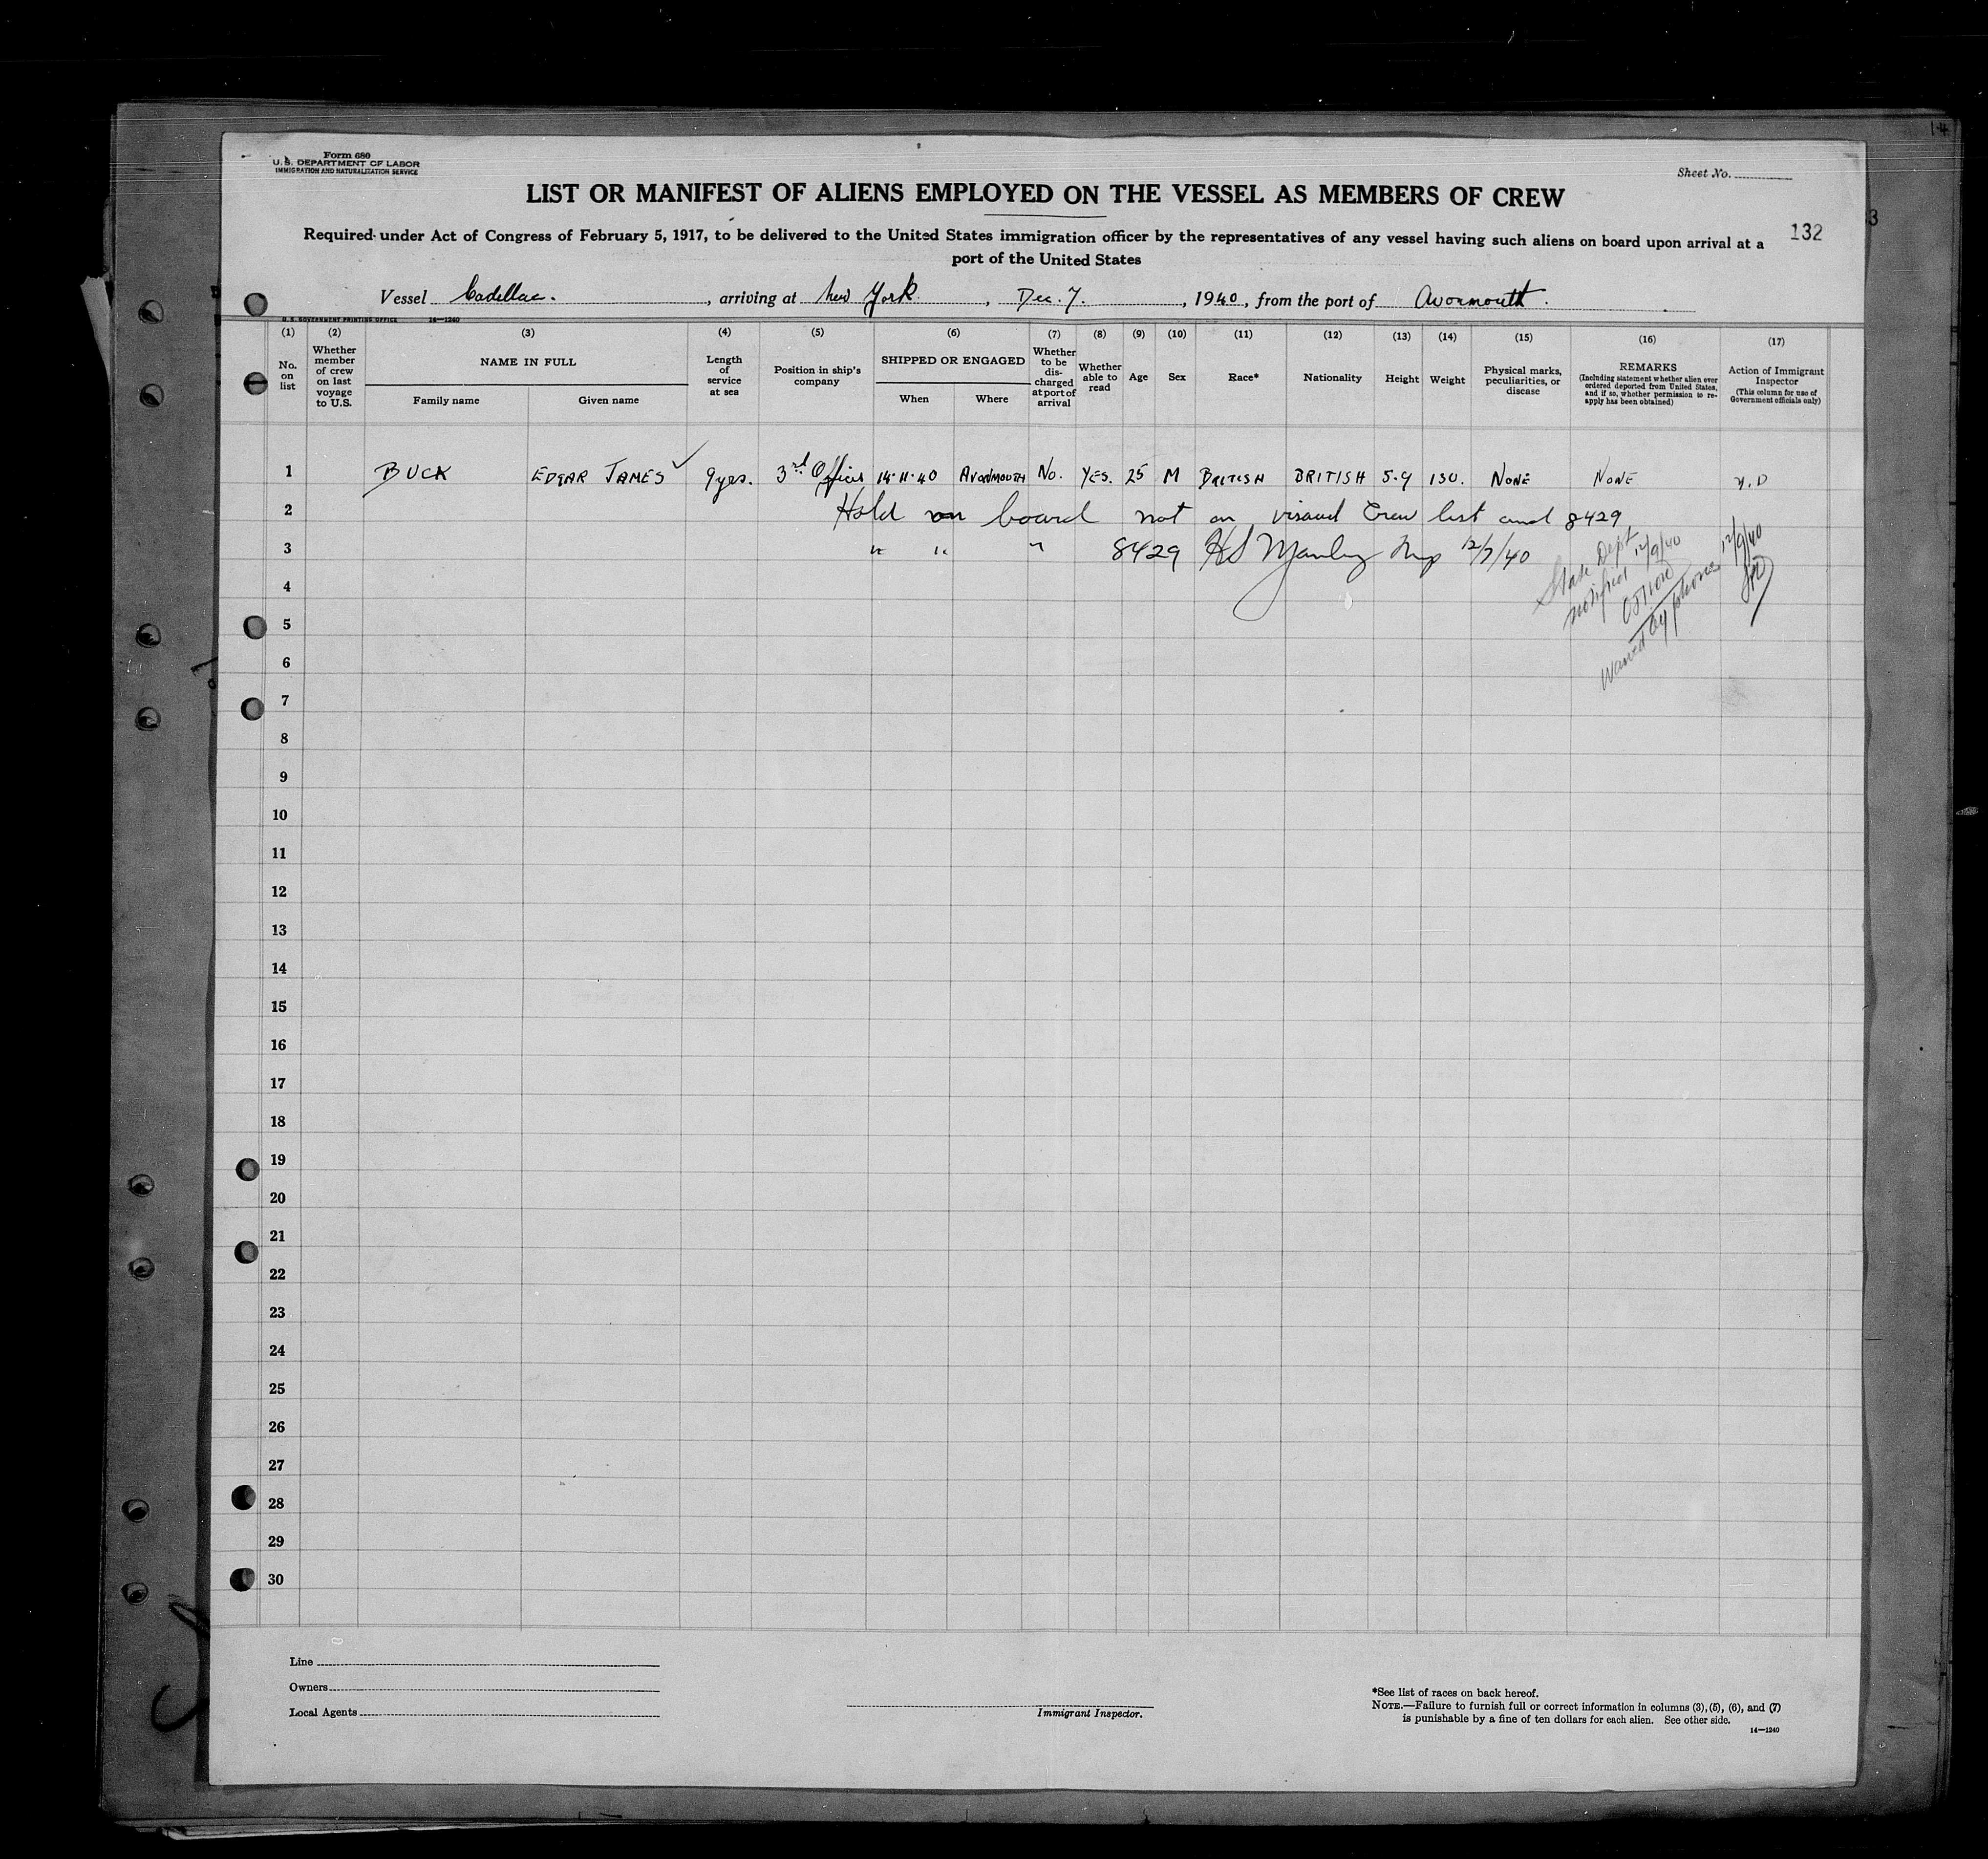 14
Form 680
U. S. DEPARTMENT OF LABOR
IMMIGRATION AND NATURALIZATION SERVICE
Sheet No.
LIST OR MANIFEST OF ALIENS EMPLOYED ON THE VESSEL AS MEMBERS OF CREW
132
3
Required under Act of Congress of February 5, 1917, to be delivered to the United States immigration officer by the representatives of any vessel having such aliens on board upon arrival at a
port of the United States
Vessel Cadillac. , arriving at New York , Dec. 7. , 1940, from the port of Avonmouth.
U. S. GOVERNMENT PRINTING OFFICE 14—1240
(1) (2) (3) (4) (5) (6) (7) (8) (9) (10) (11) (12) (13) (14) (15) (16) (17)
No. on list
Whether member of crew on last voyage to U.S.
NAME IN FULL
Family name
Given name
Length of service at sea
Position in ship's company
SHIPPED OR ENGAGED
When
Where
Whether to be discharged at port of arrival
Whether able to read
Age
Sex
Race*
Nationality
Height
Weight
Physical marks, peculiarities, or disease
REMARKS
(Including statement whether alien ever ordered deported from United States, and if so, whether permission to reapply has been obtained)
Action of Immigrant Inspector
(This column for use of Government officials only)
1 BUCK EDGAR JAMES ✓ 9 yrs. 3rd Officer 14·11·40 AVONMOUTH No. YES. 25 M BRITISH BRITISH 5·9 130. NONE NONE
2 Hold on board not on visaed Crew list and 8429
3 " " " 8429 HS Manley Insp 12/7/40
State Dept
notified 12/9/40
waived by phone 12/9/40
4
5
6
7
8
9
10
11
12
13
14
15
16
17
18
19
20
21
22
23
24
25
26
27
28
29
30
Line
Owners
Local Agents
Immigrant Inspector.
*See list of races on back hereof.
NOTE.—Failure to furnish full or correct information in columns (3), (5), (6), and (7)
is punishable by a fine of ten dollars for each alien. See other side.
14—1240